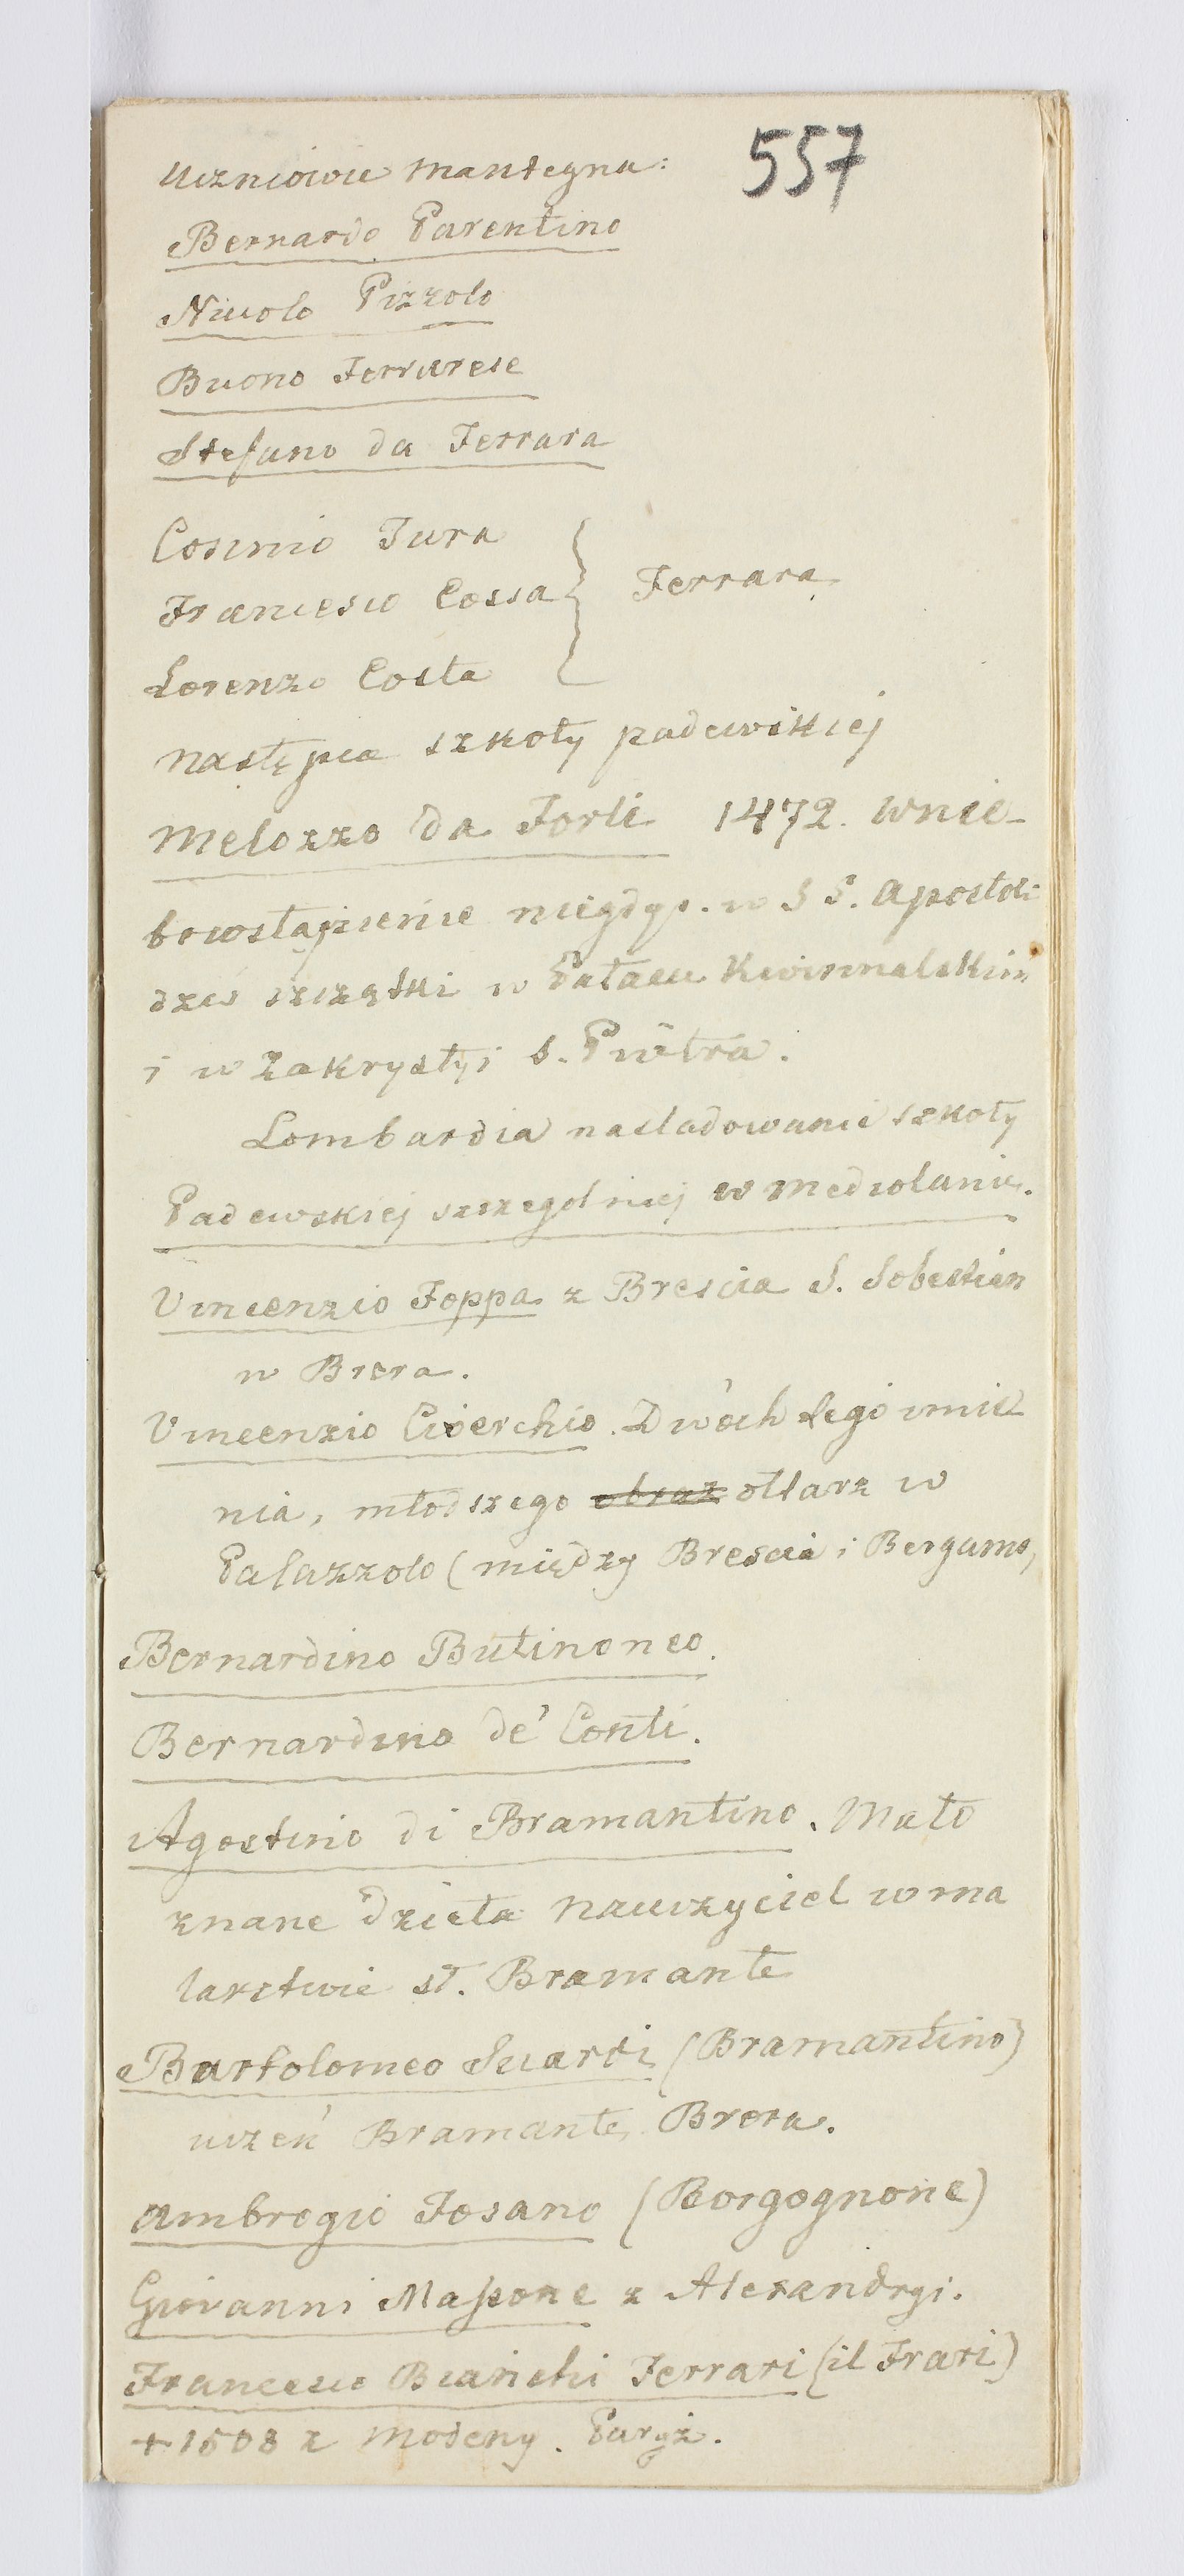 557
Uczniowie Mantegna:
Bernardo Parentino
Nicolo Pizzolo
Buono Ferrarese
Stefano da Ferrara
Cosimo Tura
Francesco Cossa } Ferrara
Lorenzo Costa
następca szkoły padewskiej
Melozzo da Forli 1472. Wnie-
bowstąpienie niegdyś. w S S. Apostoli
dziś szczątki w Pałacu Kwirinalskim
i w Zakrystyi S. Piotra.
Lombardia nasladowanie szkoły
Padewskiej szczegolniej w Medyolanie.
Vincenzio Foppa z Brescia S. Sebastian
w Brera.
Vincenzio Civerchio. Dwóch tego imie
nia, młodszego obraz ołtarz w
Palazzolo (między Brescia i Bergamo,
Bernardino Butinoneo.
Bernardino de' Conti.
Agostino di Bramantino. Mało
znane dzieła nauczyciel w ma
larstwie st. Bramante
Bartolomeo Suardi (Bramantino)
uczeń Bramante, Brera.
Ambrogio Fosano (Borgognone)
Giovanni Massone z Alexandryi.
Francesco Bianchi Ferrari (il Frari)
+ 1508 z Modeny. Paryż.